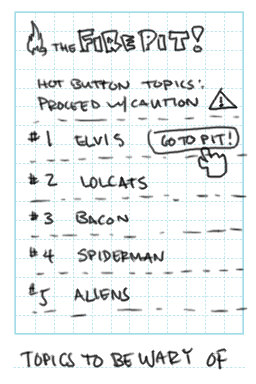 THE FIRE PIT!
HOT BUTTON TOPICS:
PROCEED W/CAUTION
#1 ELVIS GO TO PIT!
#2 LOLCATS
#3 BACON
#4 SPIDERMAN
#5 ALIENS
TOPICS TO BE WARY OF